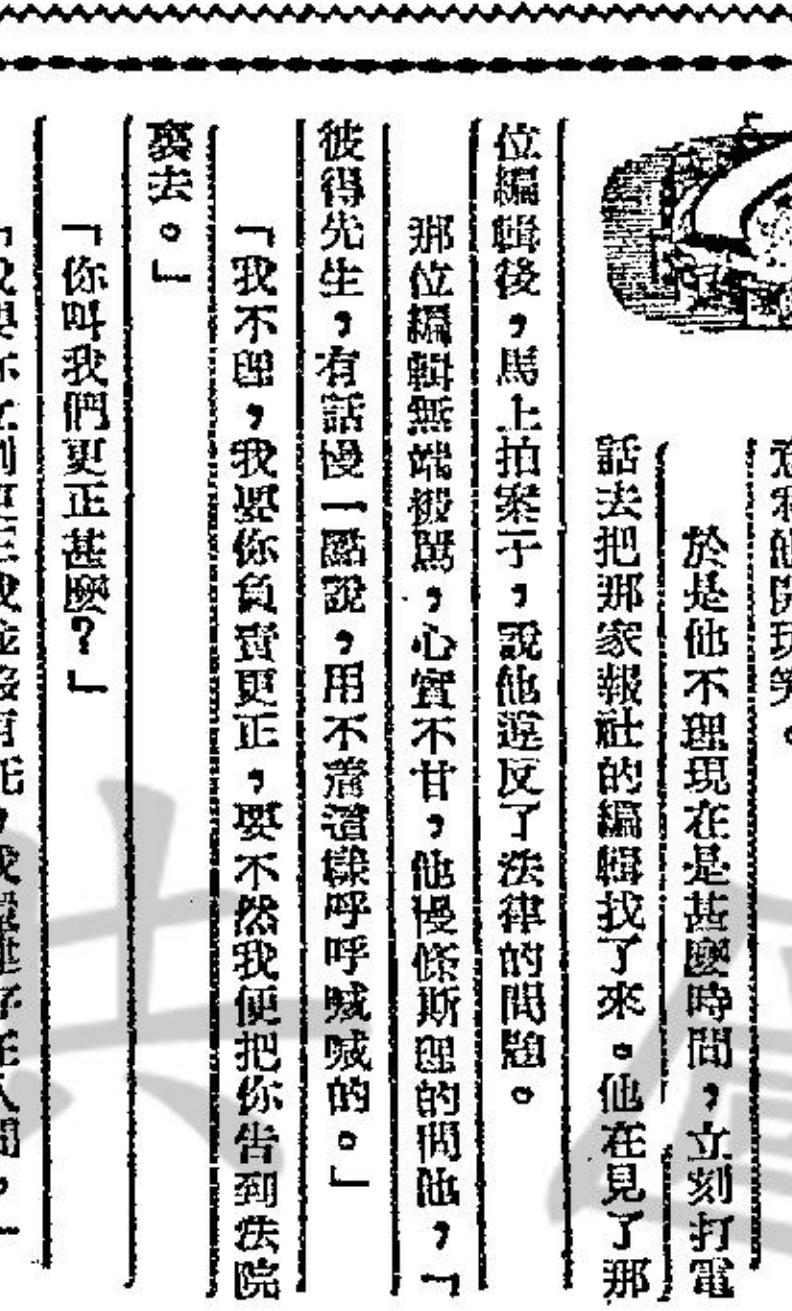 意和他開玩笑。
於是他不理現在是甚麼時間，立刻打電
話去把那家報社的編輯找了來。他在見了那
位編輯後，馬上拍案子，說他違反了法律的問題。
那位編輯無端被駡，心實不甘，他慢條斯理的問他，「
彼得先生，有話慢一點說，用不着這樣呼呼喊喊的。」
「我不理，我要你負責更正，要不然我便把你告到法院
裏去。」
「你叫我們更正甚麼？」
「我要你立刻更正我並沒有死，我還健存在人間，」